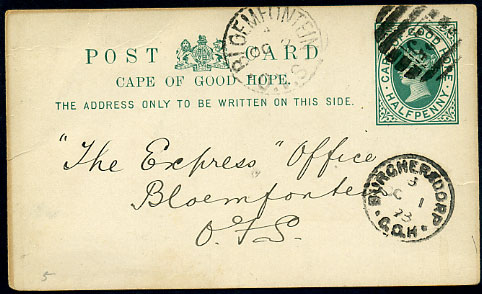 POST CARD
CAPE OF GOOD HOPE.
THE ADDRESS ONLY TO BE WRITTEN ON THIS SIDE.
CAPE OF GOOD HOPE
HALFPENNY
BLOEMFONTEIN
"The Express" Office
Bloemfontein
O.F.S.
BURGHERSDORP
3
OC 1
C.G.H.
5